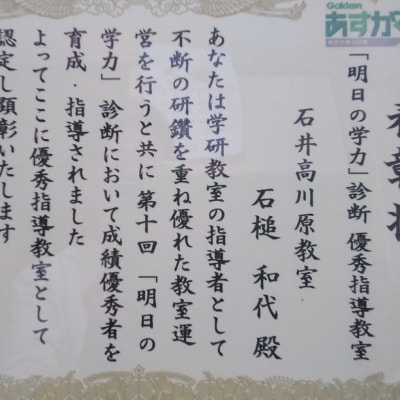 Gakken
表彰状
「明日の学力」診断 優秀指導教室
石井高川原教室
石槌 和代 殿
あなたは学研教室の指導者として
不断の研鑽を重ね優れた教室運
営を行うと共に 第十回 「明日の
学力」 診断において成績優秀者を
育成・指導されました
よってここに優秀指導教室として
認定し顕彰いたします